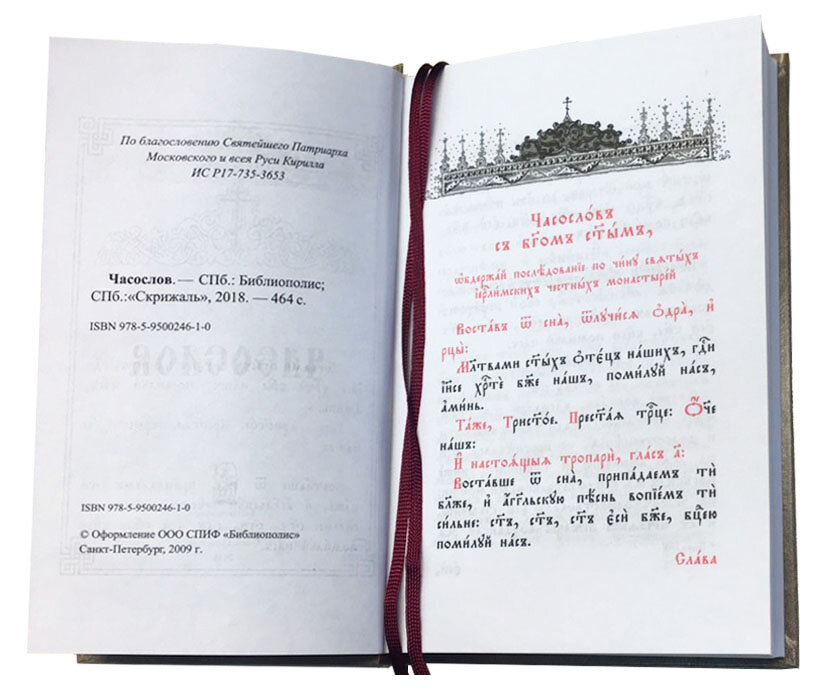 По благословению Святейшего Патриарха
Московского и всея Руси Кирилла
ИС Р17-735-3653
Часослов. — СПб.: Библиополис;
СПб.:«Скрижаль», 2018. — 464 с.
ISBN 978-5-9500246-1-0
ISBN 978-5-9500246-1-0
© Оформление ООО СПИФ «Библиополис»
Санкт-Петербург, 2009 г.
Часосло́въ
съ бг҃омъ ст҃ы́мъ,
ѡ҆бдержа́й послѣ́дованїе по чи́ну свѧты́хъ
і҆ерⷭ҇ли́мскихъ честны́хъ монастыре́й
Воста́въ ѿ сна̀, ѿлꙋчи́сѧ ѻ҆дра̀, и҆
рцы̀:
Мл҃твами ст҃ы́хъ ѻ҆тє́цъ на́шихъ, гдⷭ҇и
і҆и҃се хрⷭ҇тѐ бж҃е на́шъ, поми́лꙋй на́съ,
а҆ми́нь.
Та́же, Трист҃о́е. Прест҃а́ѧ трⷪ҇це: Ѻ҆́ч҃е
на́шъ:
И҆ настоѧ́щыѧ тропарѝ, гла́съ а҃:
Воста́вше ѿ сна̀, припа́даемъ тѝ
бл҃же, и҆ а҆́гг҃льскꙋю пѣ́снь вопїе́мъ тѝ
си́льне: ст҃ъ, ст҃ъ, ст҃ъ є҆сѝ бж҃е, бцⷣею
поми́лꙋй на́съ.
Сла́ва